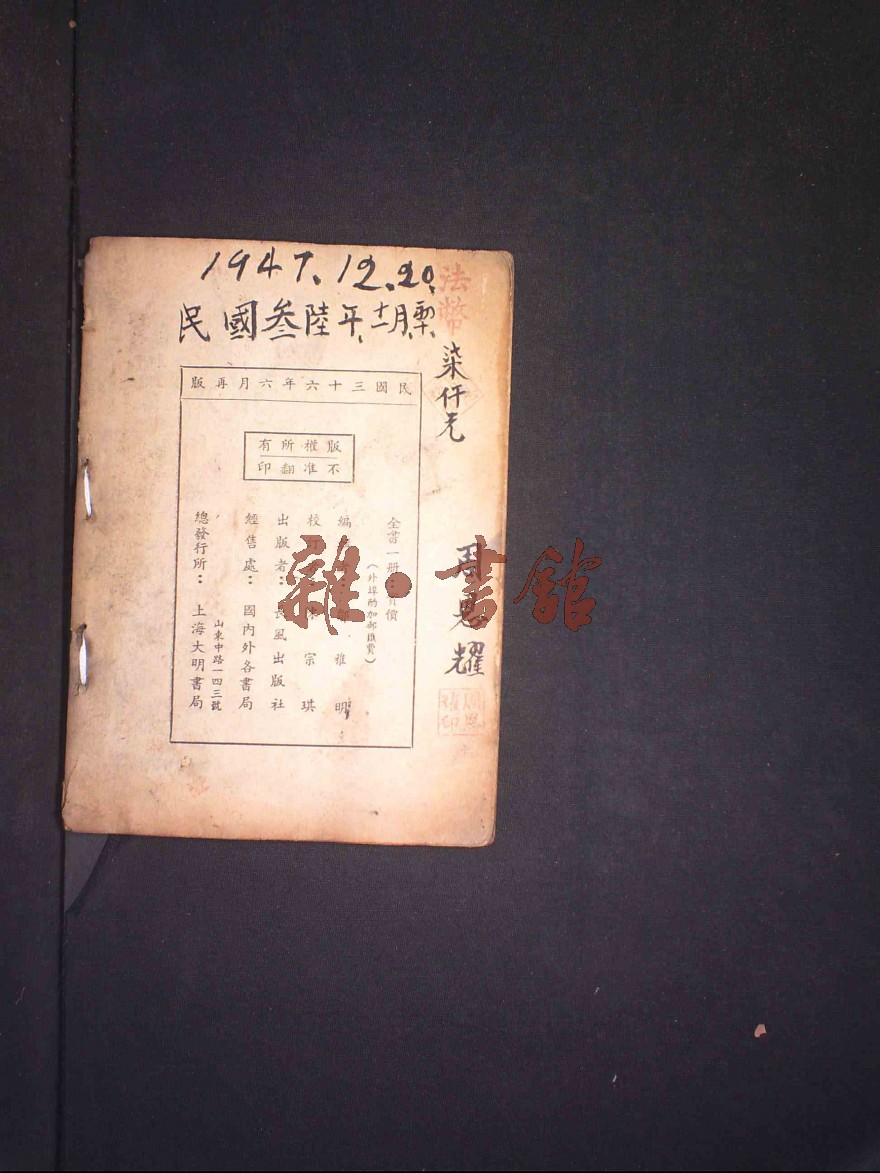 1947.12.20.
民國叁陸年十二月
法幣
柒仟元
民國三十六年六月再版
版權所有
不准翻印
全書一册
(外埠酌加郵匯費)
編 雅明
校 宗琪
出版者：長風出版社
經售處：國內外各書局
山東中路一四三號
總發行所：上海大明書局
周恩耀
雜·書館